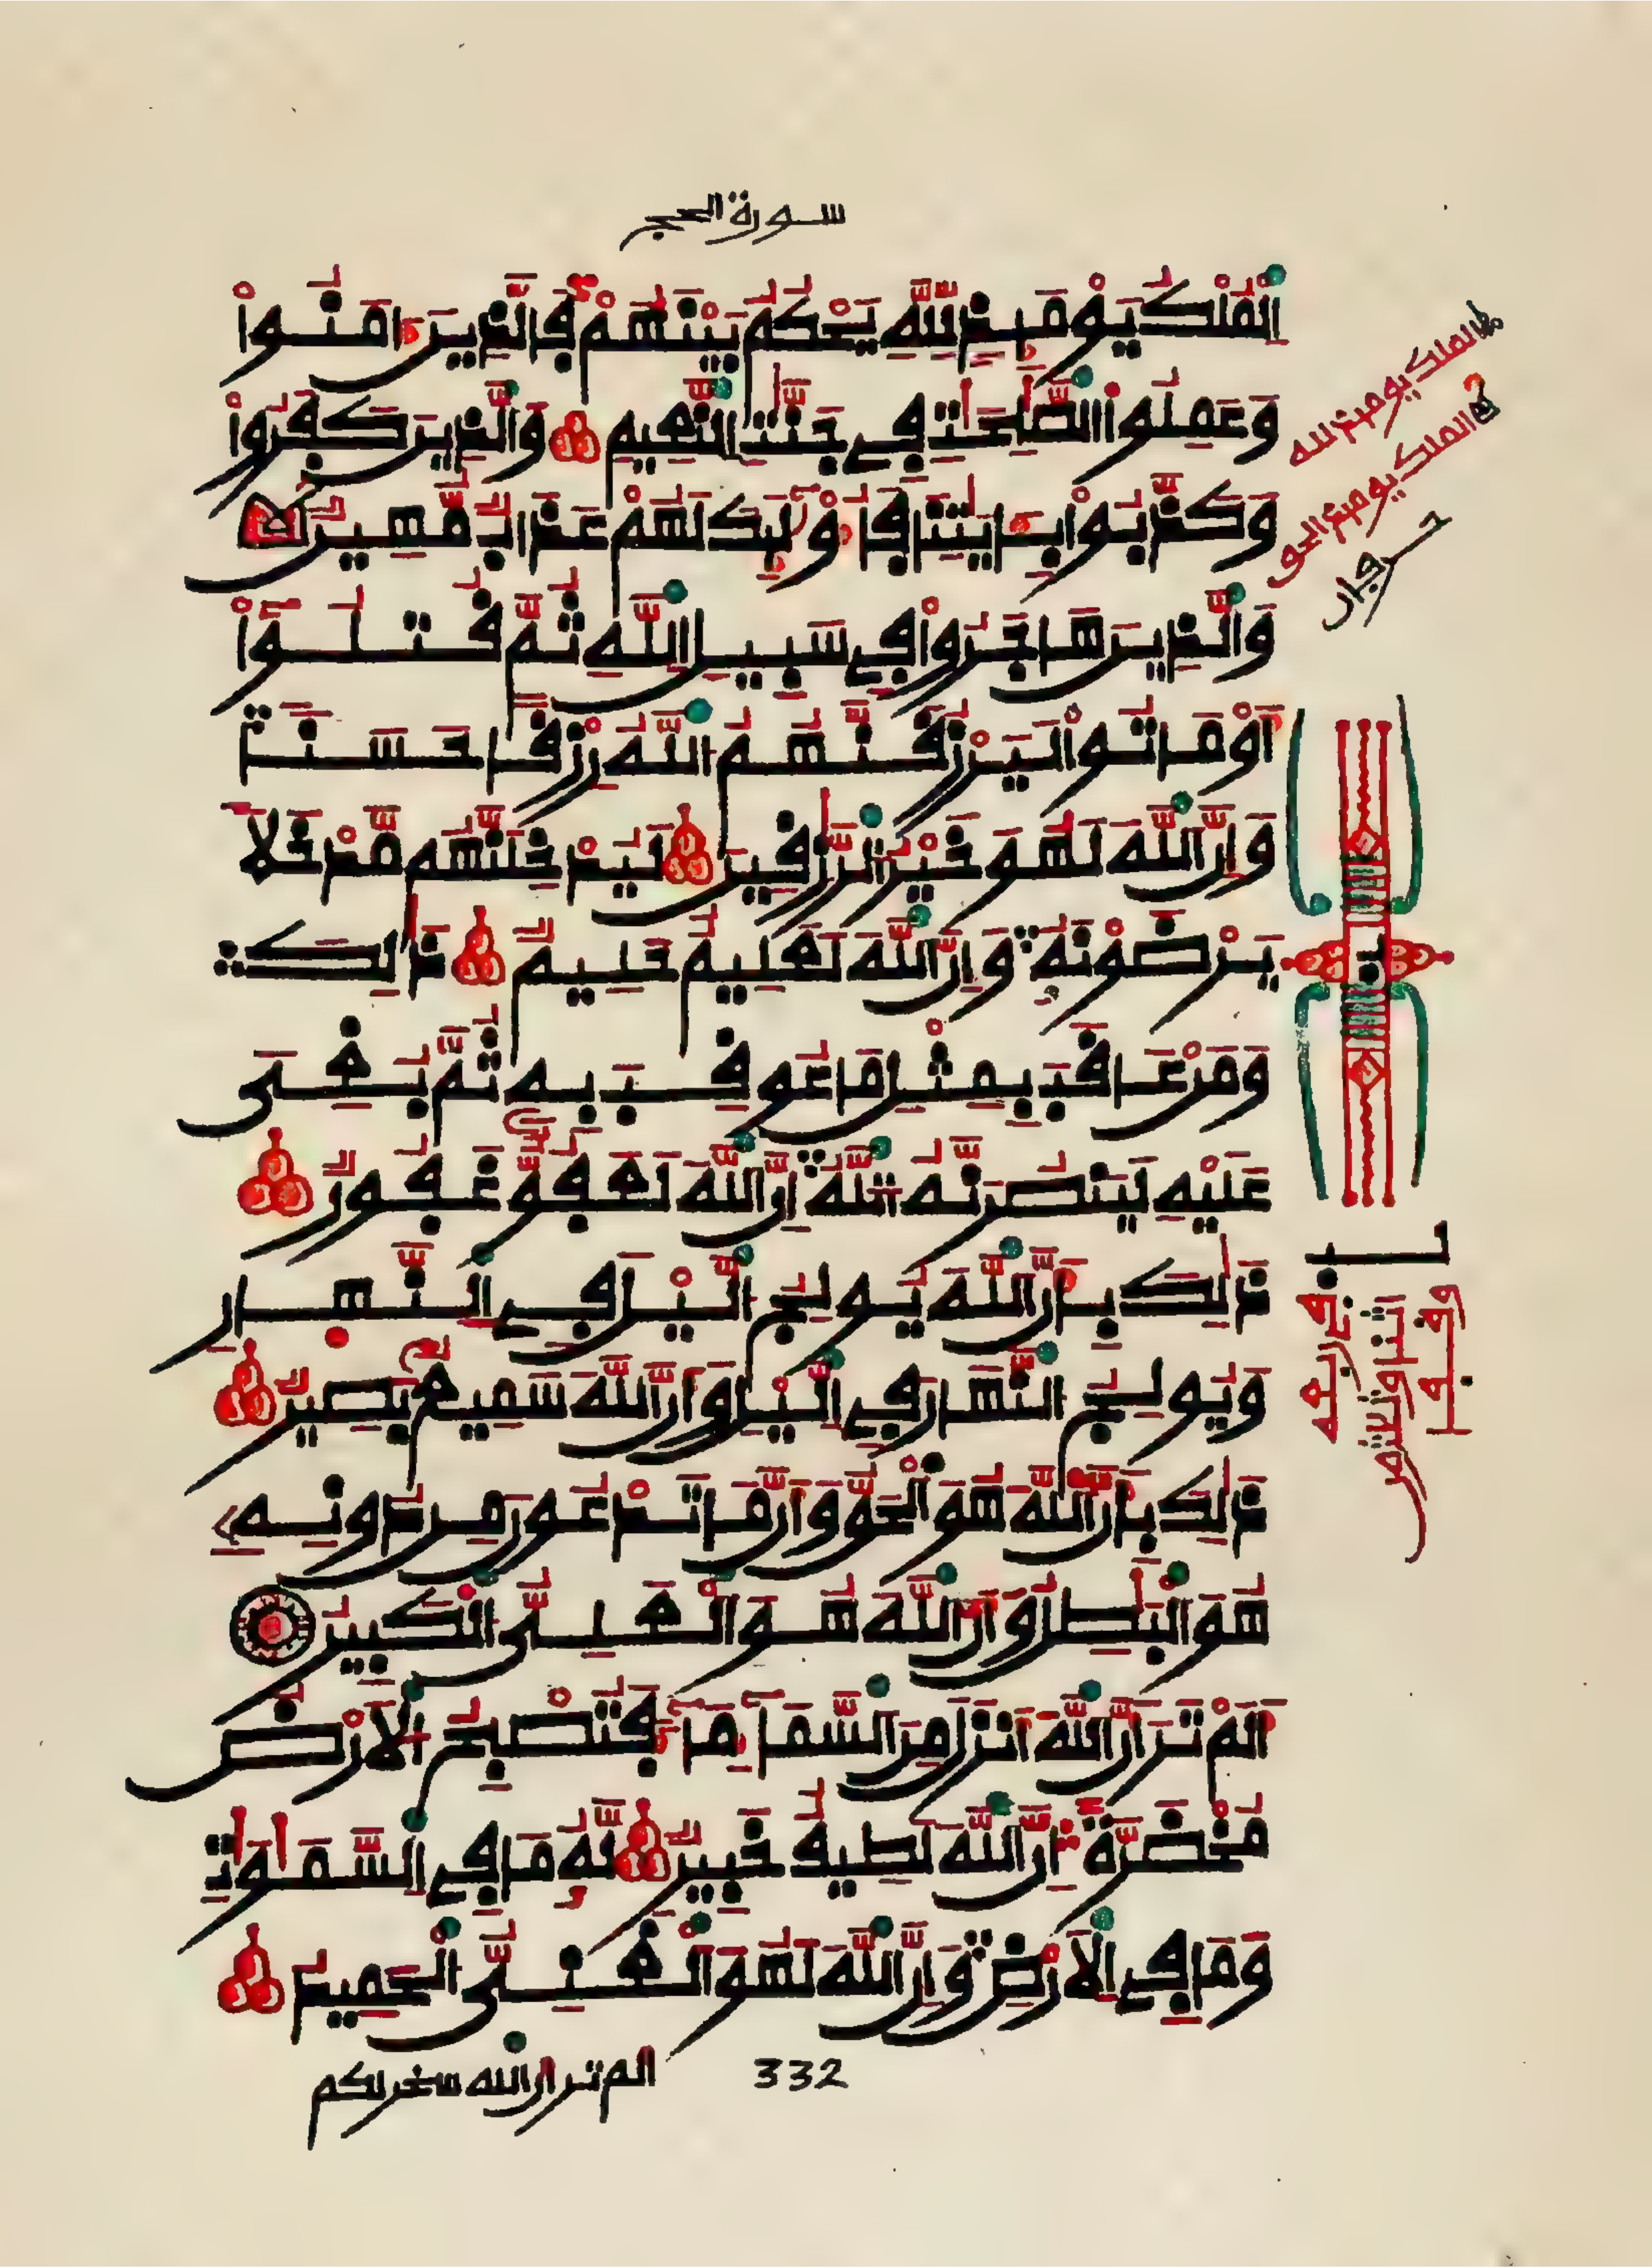 سورة الحج
اِ۬لْمُلْكُ يَوْمَئِذٍ لِّلهِ يَحْكُمُ بَيْنَهُمْ فَالذِينَ ءَامَنُواْ
وَعَمِلُواْ اُ۬لصَّٰلِحَٰتِ فِے جَنَّٰتِ اِ۬لنَّعِيمِ وَالذِينَ كَفَرُواْ
وَكَذَّبُواْ بِـَٔايَٰتِنَا فَأُوْلَٰٓئِكَ لَهُمْ عَذَابٌ مُّهِينٌ
وَالذِينَ هَاجَرُواْ فِے سَبِيلِ اِ۬للَّهِ ثُمَّ قُتِلُوٓاْ
أَوْ مَاتُواْ لَيَرْزُقَنَّهُمُ اُ۬للَّهُ رِزْقًا حَسَنٗا
وَإِنَّ اَ۬للَّهَ لَهُوَ خَيْرُ اُ۬لرَّٰزِقِينَ لَيُدْخِلَنَّهُم مَّدْخَلٗا
يَرْضَوْنَهُۥ وَإِنَّ اَ۬للَّهَ لَعَلِيمٌ حَلِيمٌ ذَٰلِكَ
وَمَنْ عَاقَبَ بِمِثْلِ مَا عُوقِبَ بِهِۦ ثُمَّ بُغِيَ
عَلَيْهِ لَيَنصُرَنَّهُ اُ۬للَّهُ إِنَّ اَ۬للَّهَ لَعَفُوٌّ غَفُورٌ
ذَٰلِكَ بِأَنَّ اَ۬للَّهَ يُولِجُ اُ۬ليْلَ فِے اِ۬لنَّهَارِ
وَيُولِجُ اُ۬لنَّهَارَ فِے اِ۬ليْلِ وَأَنَّ اَ۬للَّهَ سَمِيعٌۢ بَصِيرٌ
ذَٰلِكَ بِأَنَّ اَ۬للَّهَ هُوَ اَ۬لْحَقُّ وَأَنَّ مَا تَدْعُونَ مِن دُونِهِۦ
هُوَ اَ۬لْبَٰطِلُ وَأَنَّ اَ۬للَّهَ هُوَ اَ۬لْعَلِيُّ اُ۬لْكَبِيرُ
أَلَمْ تَرَ أَنَّ اَ۬للَّهَ أَنزَلَ مِنَ اَ۬لسَّمَآءِ مَآءٗ فَتُصْبِحُ اُ۬لْأَرْضُ
مُخْضَرَّةً إِنَّ اَ۬للَّهَ لَطِيفٌ خَبِيرٌ لَّهُۥ مَا فِے اِ۬لسَّمَٰوَٰتِ
وَمَا فِے اِ۬لْأَرْضِ وَإِنَّ اَ۬للَّهَ لَهُوَ اَ۬لْغَنِيُّ اُ۬لْحَمِيدُ
الم تر ان الله سخر لكم
332
الملك يومئذ لله
الملك يومئذ الحق